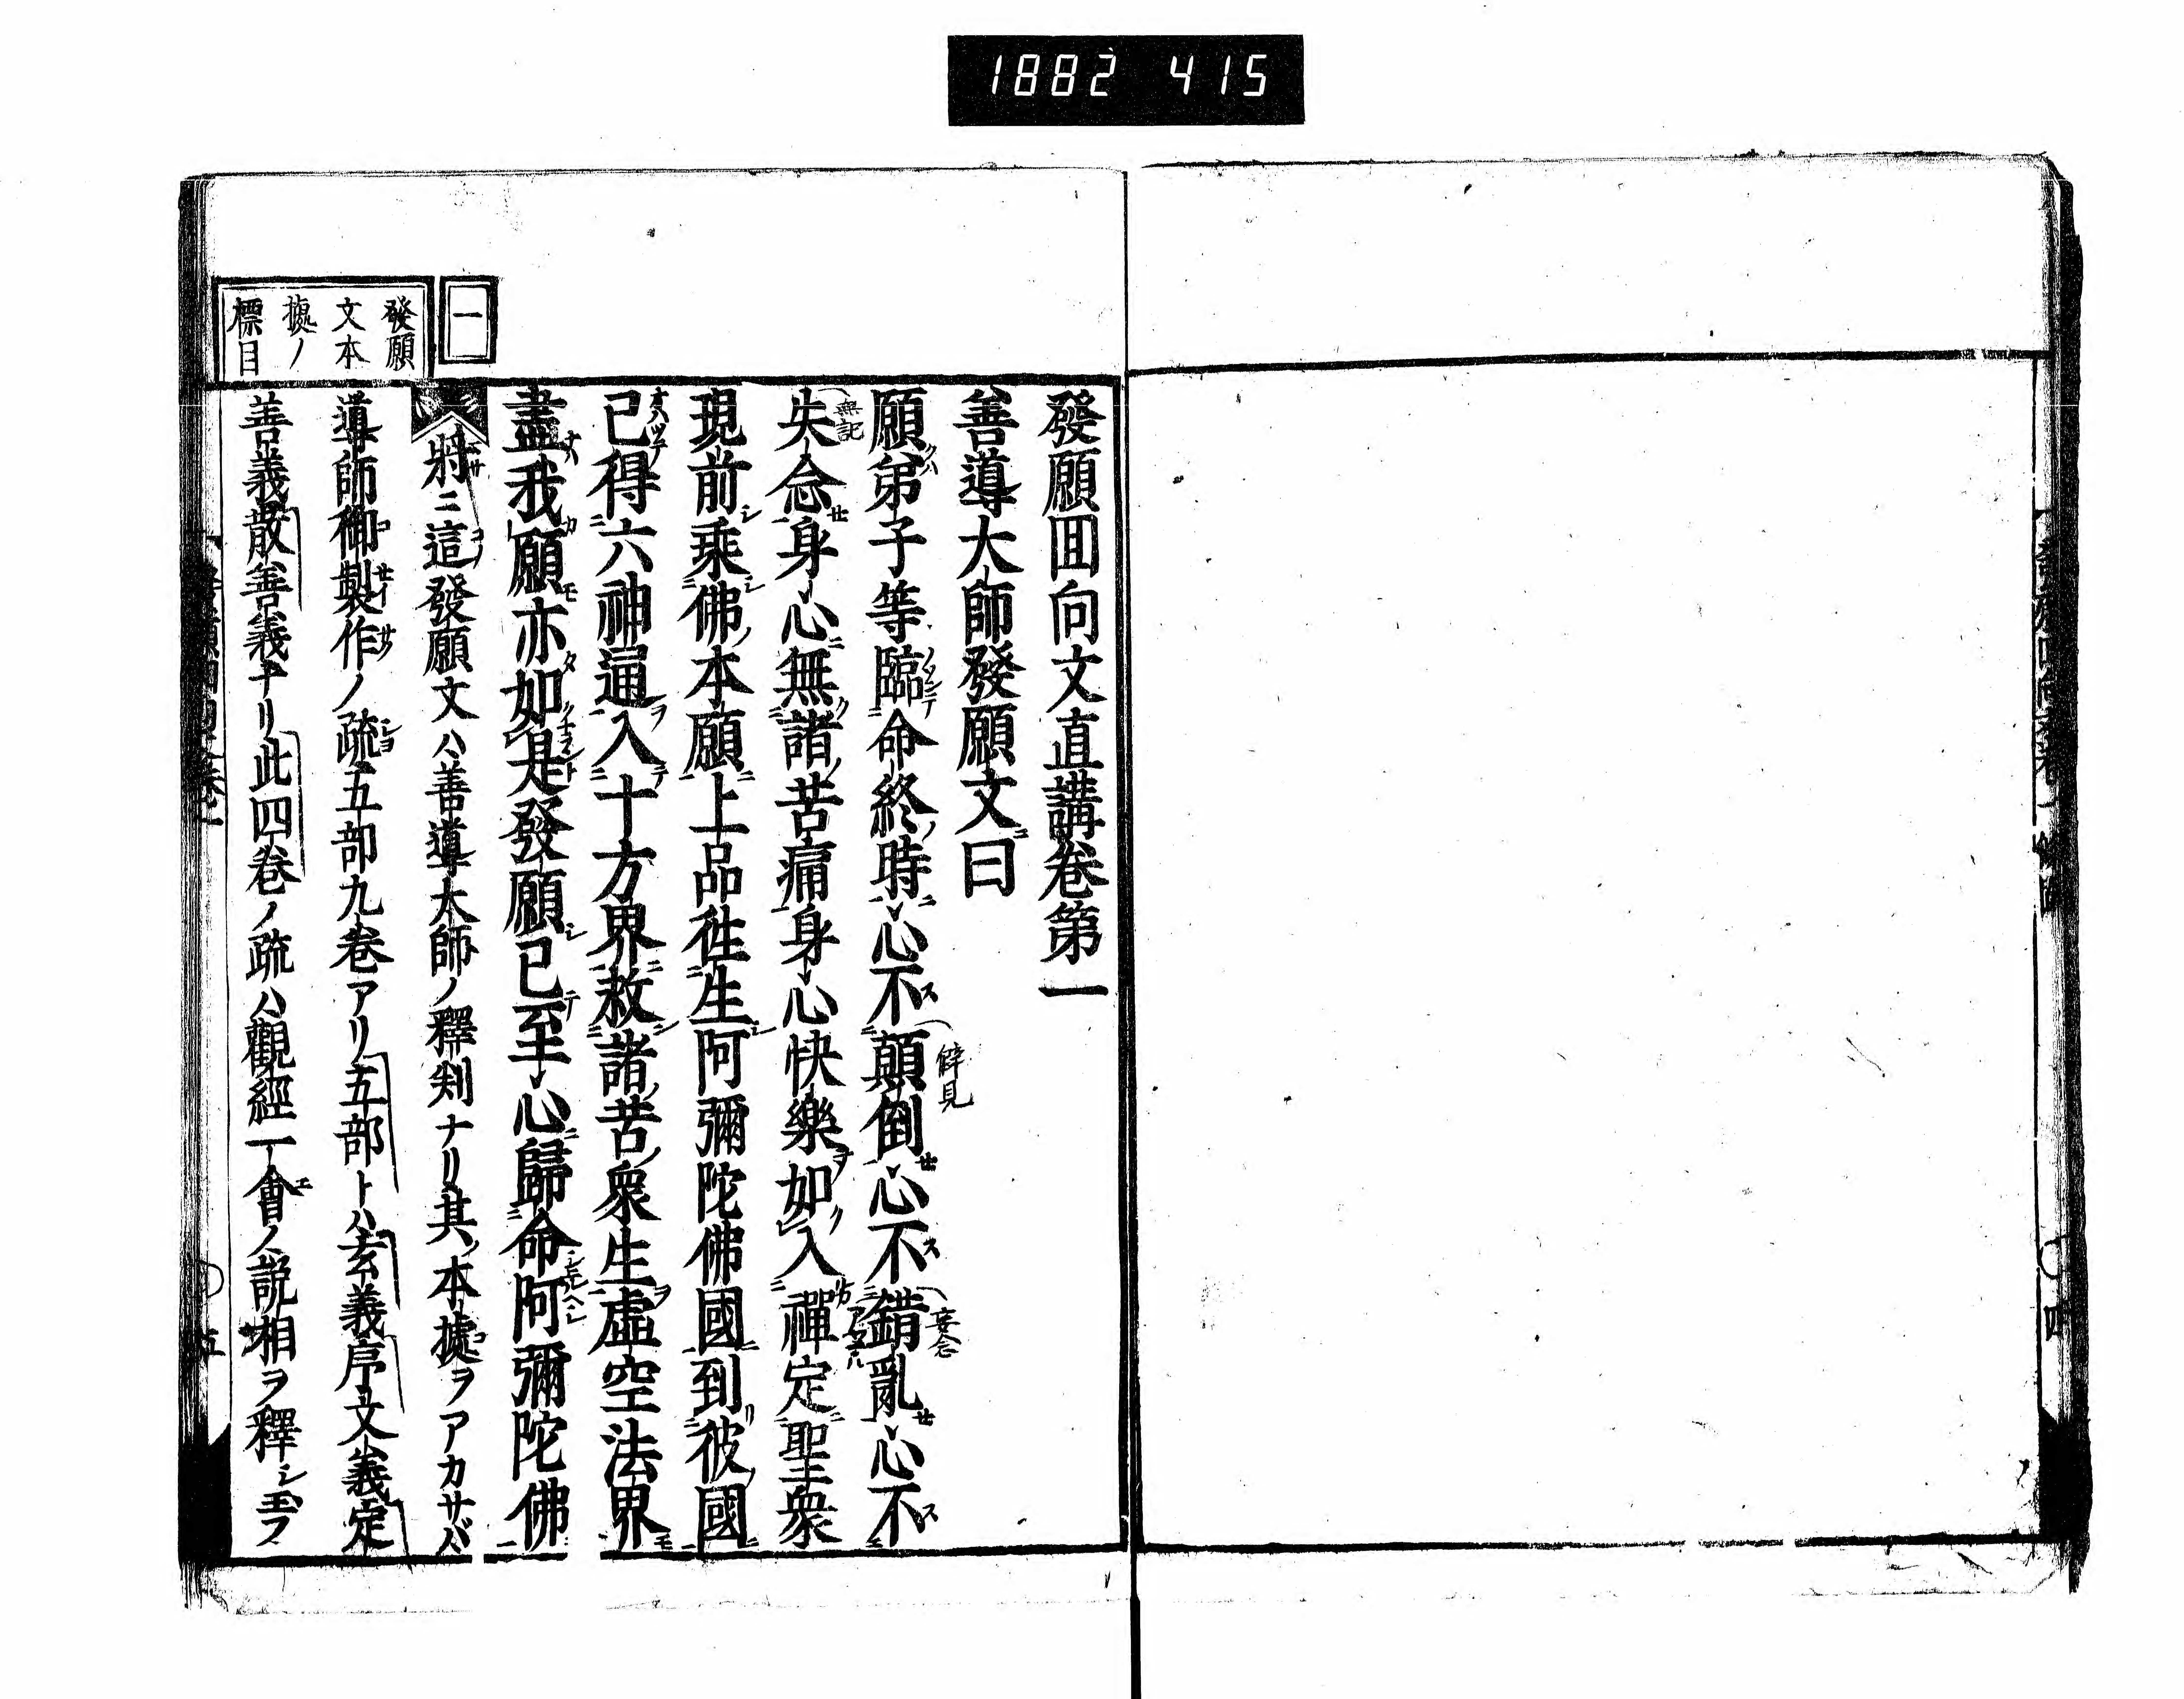 1882 415
發願回向文直講卷第一
善導大師發願文曰
願弟子等臨命終時心不顛倒心不錯亂心不
失念身心無諸苦痛身心快樂如入禪定聖衆
現前乘佛本願上品徃生阿彌陀佛國到彼國
已得六神通入十方界救諸苦衆生虛空法界
盡我願亦如是發願已至心歸命阿彌陀佛
僻見
妄念
無記
一
發願
文本
據ノ
標目
將ニ這發願文ハ善導大師ノ釋判ナリ其ノ本據ヲアカサバ
導師御製作ノ疏五部九卷アリ五部トハ玄義序文義定
善義散善義ナリ此四卷ノ疏ハ觀經一會ノ說相ヲ釋シ玉フ